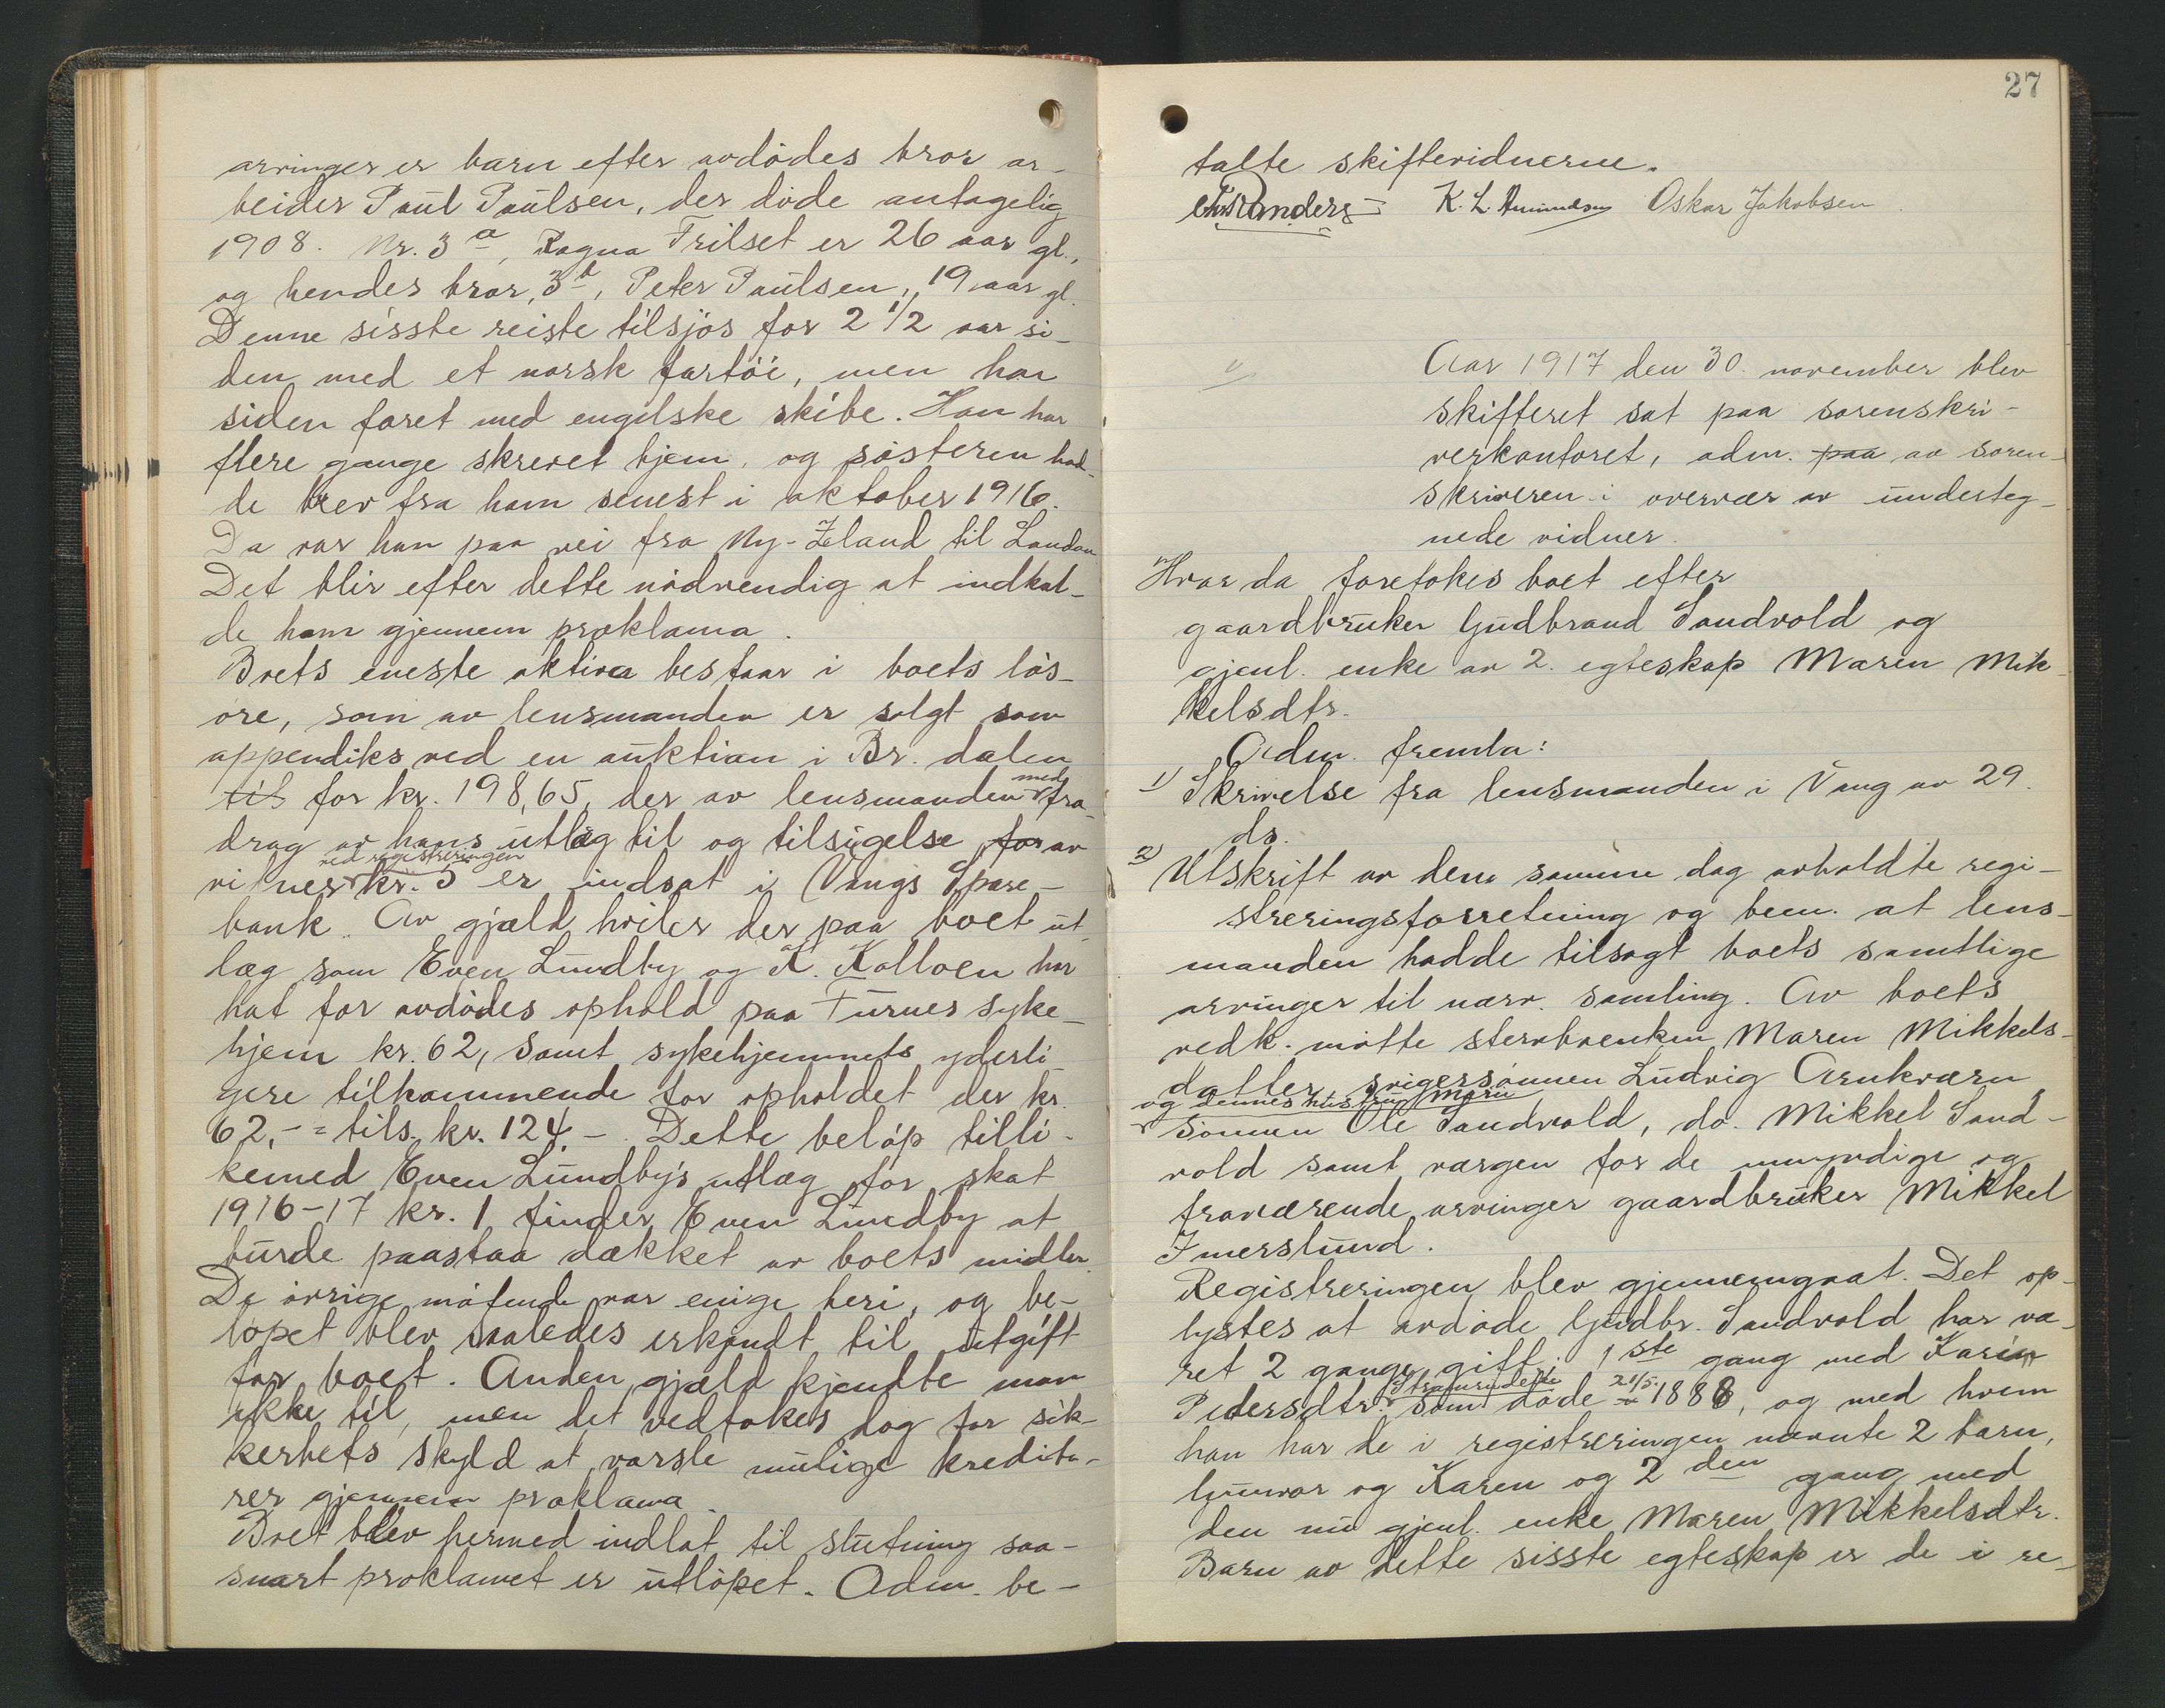 arvinger er barn efter avdødes bror ar-
beider Paul Paulsen, der døde antagelig
1908. Nr. 3 a, Ragna Trilset er 26 aar gl.,
og hendes bror, 3 b, Peter Paulsen, 19 aar gl.
Denne sisste reiste tilsjøs for 2 1/2 aar si-
den med et norsk fartøi, men har
siden faret med engelske skibe. Han har
flere gange skrevet hjem, og søsteren had-
de brev fra ham senest i oktober 1916.
Da var han paa vei fra Ny-Zeland til London
Det blir efter dette nødvendig at indkal-
de ham gjennem proklama.
Boets eneste aktiva bestaar i boets løs-
øre, som av lensmanden er solgt som
appendiks ved en auktion i Br. dalen
til for kr. 198,65, der av lensmanden med fra-
drag av hans utlæg til og tilsigelse for av
vidner ved registreringen kr. 5 er indsat i Vangs Spare-
bank. Av gjæld hviler der paa boet ut-
læg som Even Lundby og K. Kolloen har
hat for avdødes ophold paa Furnes syke-
hjem kr. 62, samt sykehjemmets yderli-
gere tilkommende for opholdet der kr.
62,- = tils. kr. 124.- Dette beløp tilli-
kemed Even Lundby's utlæg for skat
1916-17 kr. 1 finder Even Lundby at
burde paastaa dækket av boets midler.
De øvrige møtende var enige heri, og be-
løpet blev saaledes erkjendt til utgift
for boet. Anden gjæld kjendte man
ikke til, men det vedtokes dog for sik-
kerhets skyld at varsle mulige kredito-
rer gjennem proklama.
Boet blev hermed indlat til slutning saa-
snart proklamet er utløpet. Adm. be-
27
talte skiftevidnerne.
K. L. Amundsen Oskar Jakobsen.
Aar 1917 den 30. november blev
skifteret sat paa sorenskri-
verkontoret, adm. paa av soren-
skriveren i overvær av underteg-
nede vidner.
Hvor da foretokes boet efter
gaardbruker Gudbrand Sandvold og
gjenl. enke av 2. egteskap Maren Mik-
kelsdtr.
Adm. fremla:
1) Skrivelse fra lensmanden i Vang av 29.
ds.
2) Utskrift av den samme dag avholdte regi-
streringsforretning og bem. at lens-
manden hadde tilsagt boets samtlige
arvinger til nærv. samling. Av boets
vedk. møtte stervboenken Maren Mikkels-
datter, svigersønnen Ludvig Arnkværn
og dennes hustru Marie
Sønnen Ole Sandvold, do. Mikkel Sand-
vold samt værgen for de umyndige og
fraværende arvinger gaardbruker Mikkel
Imerslund.
Registreringen blev gjennemgaat. Det op-
lystes at avdøde Gudbr. Sandvold har væ-
ret 2 gange gift, 1 ste gang med Karin
Pedersdtr. som døde 21/5. 1888, og med hvem
han har de i registreringen nævnte 2 barn,
Gunvor og Karen og 2 den gang med
den nu gjenl. enke Maren Mikkelsdtr.
Barn av dette sisste egteskap er de i re-